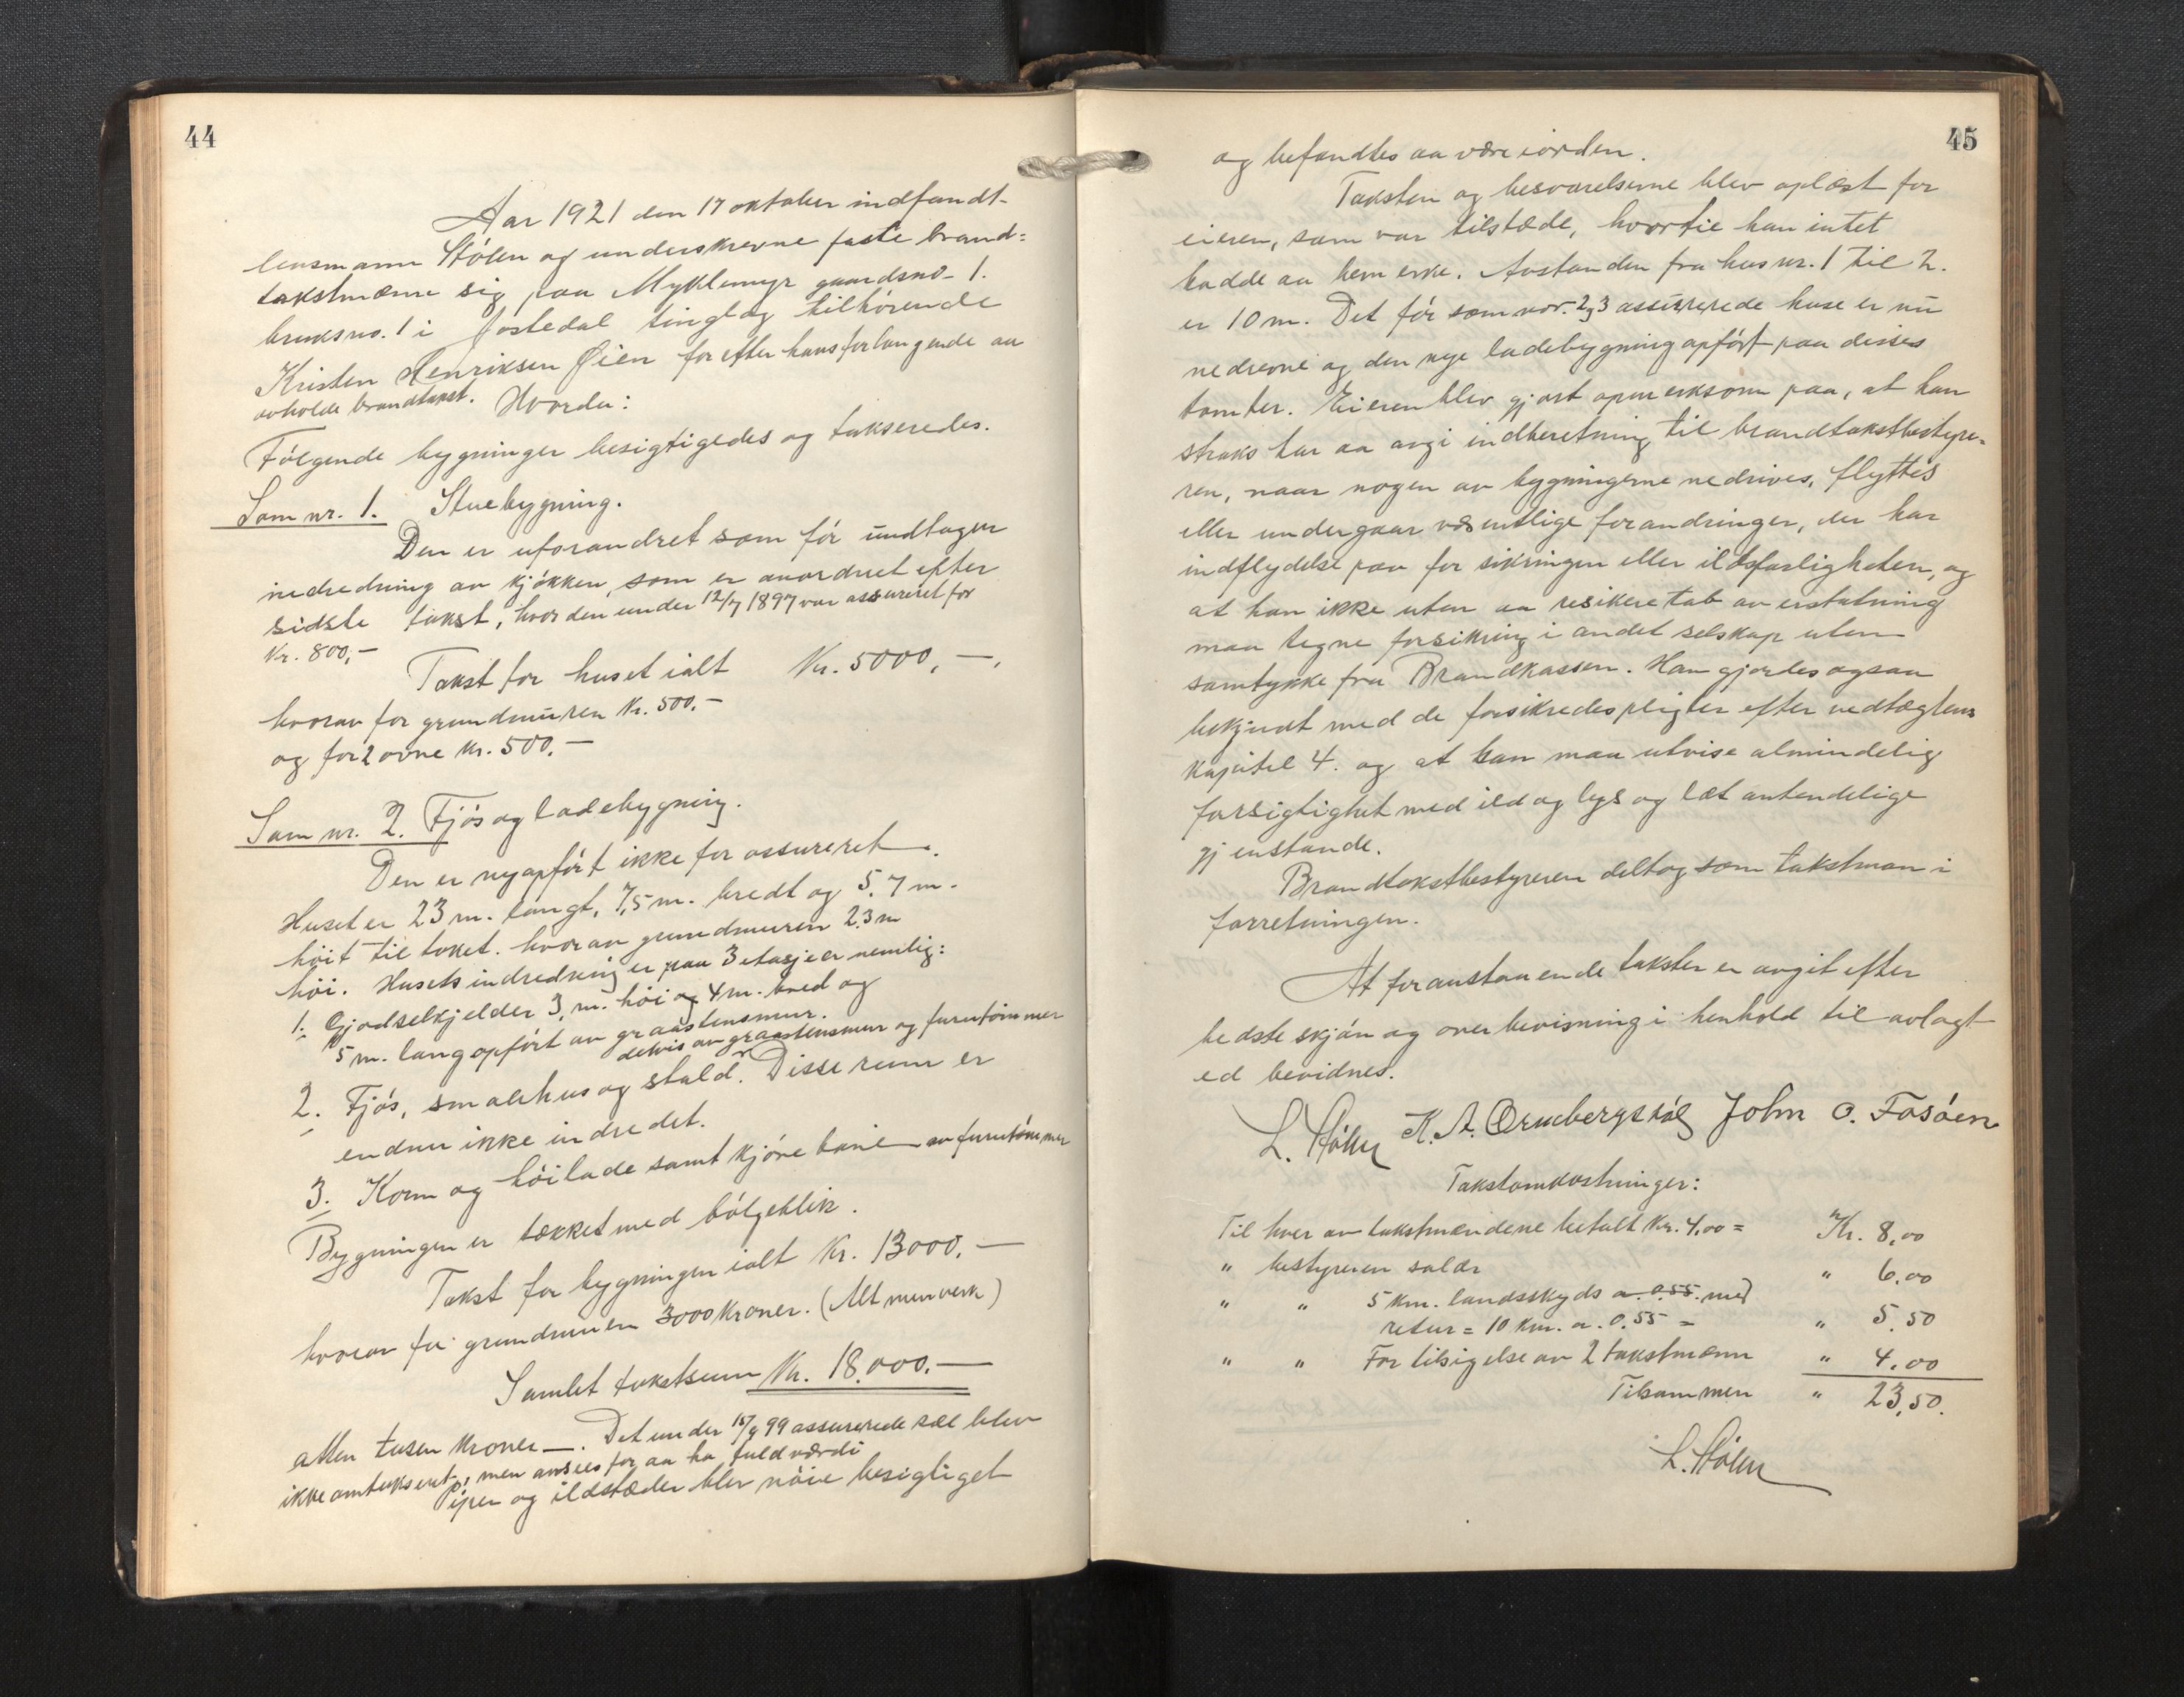 44
Aar 1921 den 17 oktober indfandt
lensmann Stølen og underskrevne faste brand=
takstmænn sig paa Myklemyr gaardsno. 1.
bruksno. 1 i Jostedal tinglag tilhørende
Kristen Henriksen Øien for efter hans forlangende aa
avholde brandtakst. Hvorda:
Følgende bygninger besigtigedes og takseredes.
Som nr. 1. Stuebygning.
Den er uforandret som før undtagen
nedredning av kjøkken, som er anordnet efter
sidste takst, hvor den under 12/7 1897 var assureret for
Kr. 800,-
Takst for huset ialt Kr. 5000,-.
hvorav for grundmuren Kr. 500.-
og for 2 ovne Kr. 500.-
Som nr. 2. Fjøs og ladebygning.
Den er nyopført ikke før assureret.
Huset er 23 m. langt, 7,5 m. bredt og 5,7 m.
høit til taket. hvorav grundmuren 2,3 m
høi. Husets indredning er paa 3 etasjer nemlig:
1. Gjødselkjelder 3, m. høi og 4 m. bred og
5 m. lang opført av graastensmur.
delvis av graastensmur og furutømmer
2. Fjøs, smalehus og stald. Disse rum er
endnu ikke indredet.
3. Korn og høilade samt kjørebane av furutømmer
Bygningen er tækket med bølgeblik.
Takst for bygningen ialt Kr. 13000.-
hvorav for grundmuren 3000 kroner. (Alt murverk)
Samlet takstsum Kr. 18.000.-
atten tusen kroner-. Det under 15/9 99 assurerede sæl blev
ikke omtaksert, men ansees for aa ha fuld værdi
Piper og ildstæder blev nøie besigtiget
45
og befandtes aa være iorden.
Taksten og besvarelserne blev oplæst for
eieren, som var tilstæde, hvortil han intet
hadde aa bemerke. Avstanden fra hus nr. 1 til 2.
er 10 m. Det før som nor. 2 og 3 assurerede huse er nu
nedrevne og den nye ladebygning opført paa disses
tomter. Eieren blev gjort opmerksom paa, at han
straks har aa avgi indberetning til brandtakstbestyre-
ren, naar nogen av bygningerne nedrives, flyttes
eller undergaar væsentlige forandringer, der har
indflydelse paa forsikringen eller ildsfarligheten, og
at han ikke uten aa resikere tab av erstatning
maa tegne forsikring i andet selskap uten
samtykke fra Brandkassen. Han gjordes ogsaa
bekjendt med de forsikredes pligter efter vedtægtens
kapitel 4. og at han maa utvise almindelig
forsigtighet med ild og lys og let antendelige
gjenstande.
Brandtakstbestyreren deltog som takstman i
forretningen.
At foranstaaende takster er avgit efter
bedste skjøn og overbevisning i henhold til avlagt
ed bevidnes.
L. Stølen K. A. Ormbergstøl John O. Fosøen
Takstomkostninger:
Til hver av takstmændene betalt Kr. 4,00 = Kr. 8,00
" bestyreren salær " 6.00
" " 5 km. landsskyds a. 0.55. med
retur = 10 km. a. 0.55 = " 5.50
" " For tilsigelse av 2 takstmænn " 4.00
Tilsammen " 23,50.
L. Stølen